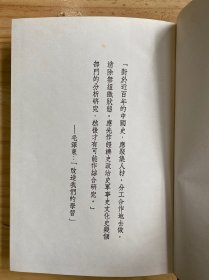 「對於近百年的中國史，應聚集人材，分工合作地去做，
除無組織狀態。應先作經濟史政治史軍事史文化史幾個
部門的分析研究，然後才有可能作綜合研究。」
——毛澤東：「改造我們的學習」